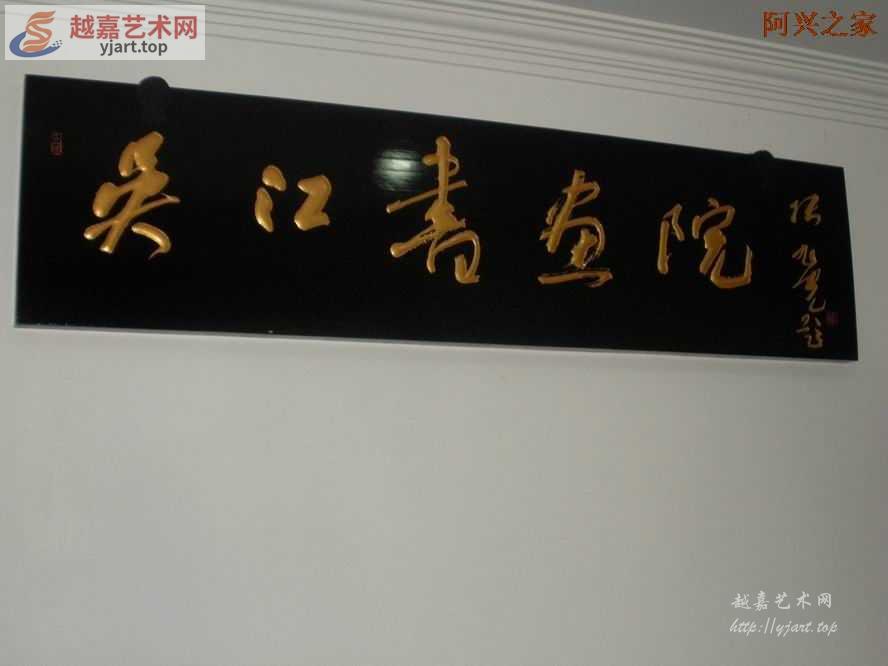 越嘉艺术网
yjart.top
阿兴之家
吴江書画院
题
越嘉艺术网
http://yjart.top